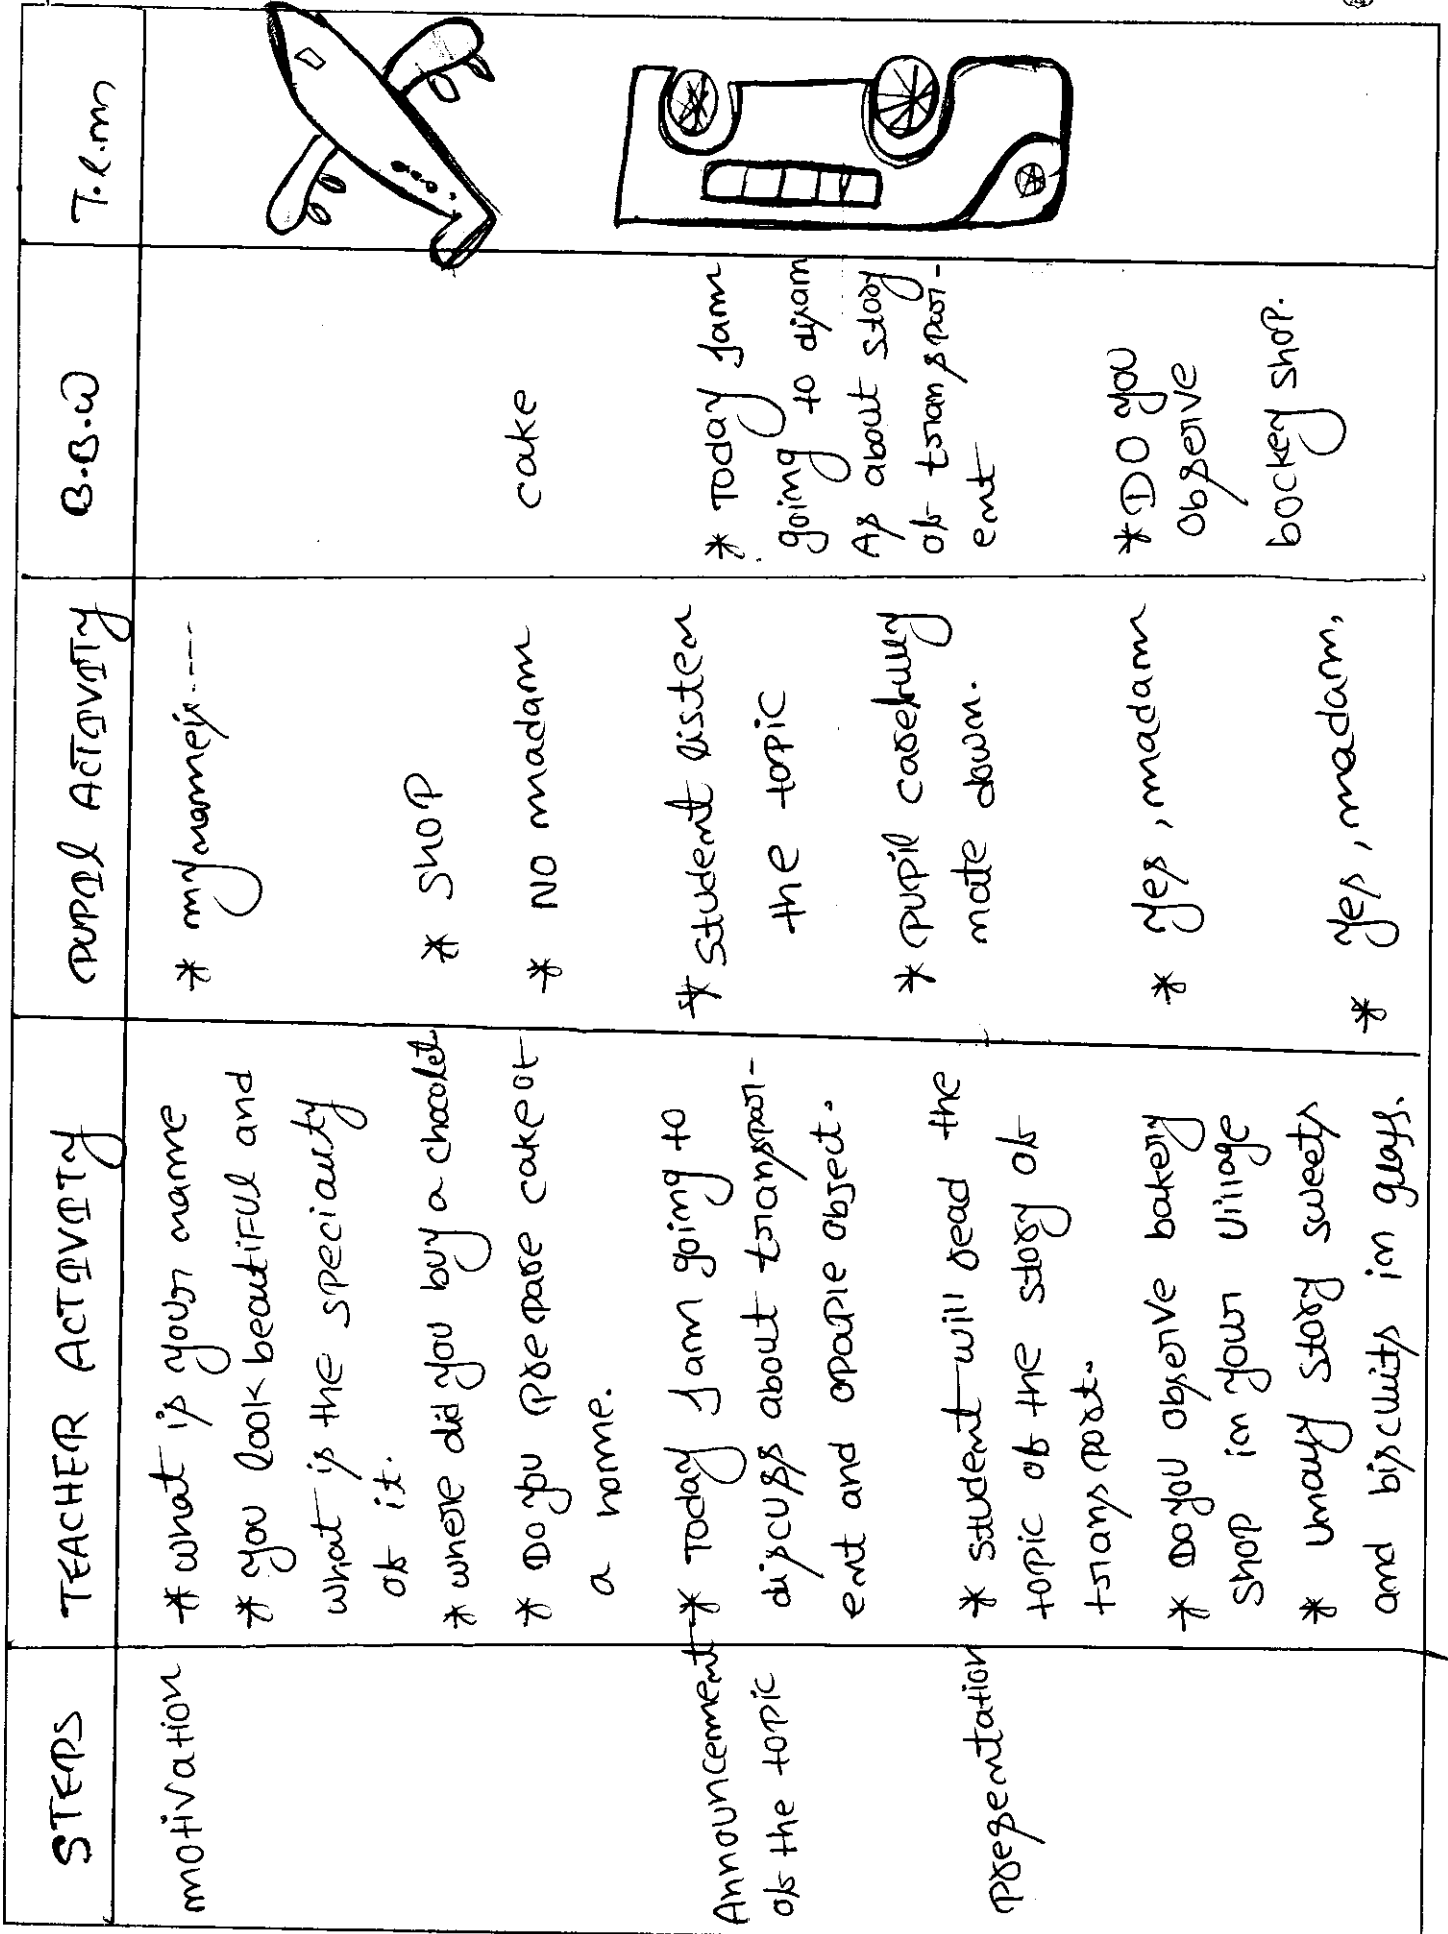 STEPS
TEACHER ACTIVITY
PUPIL ACTIVITY
B.B.W
T.l.m
motivation
* what is your name
* you look beautiful and
what is the speciauty
of it.
* where did you buy a chocolet
* Do you prepare cake ot
a home.
* my name is ----
* shop
* NO madam
cake
Announcement
of the topic
* Today I am going to
discuss about transpar-
ent and opaule object.
* Student listen
the topic
* pupil carefully
note down.
* Today I am
going to
As about story
of transpar-
ent
presentation
* student will read the
topic of the story of
transport.
* Do you observe bakery
shop in your village
story sweets
and biscuits in glass.
* yes, madam
* yes, madam,
* DO you
observe
bockey shop.